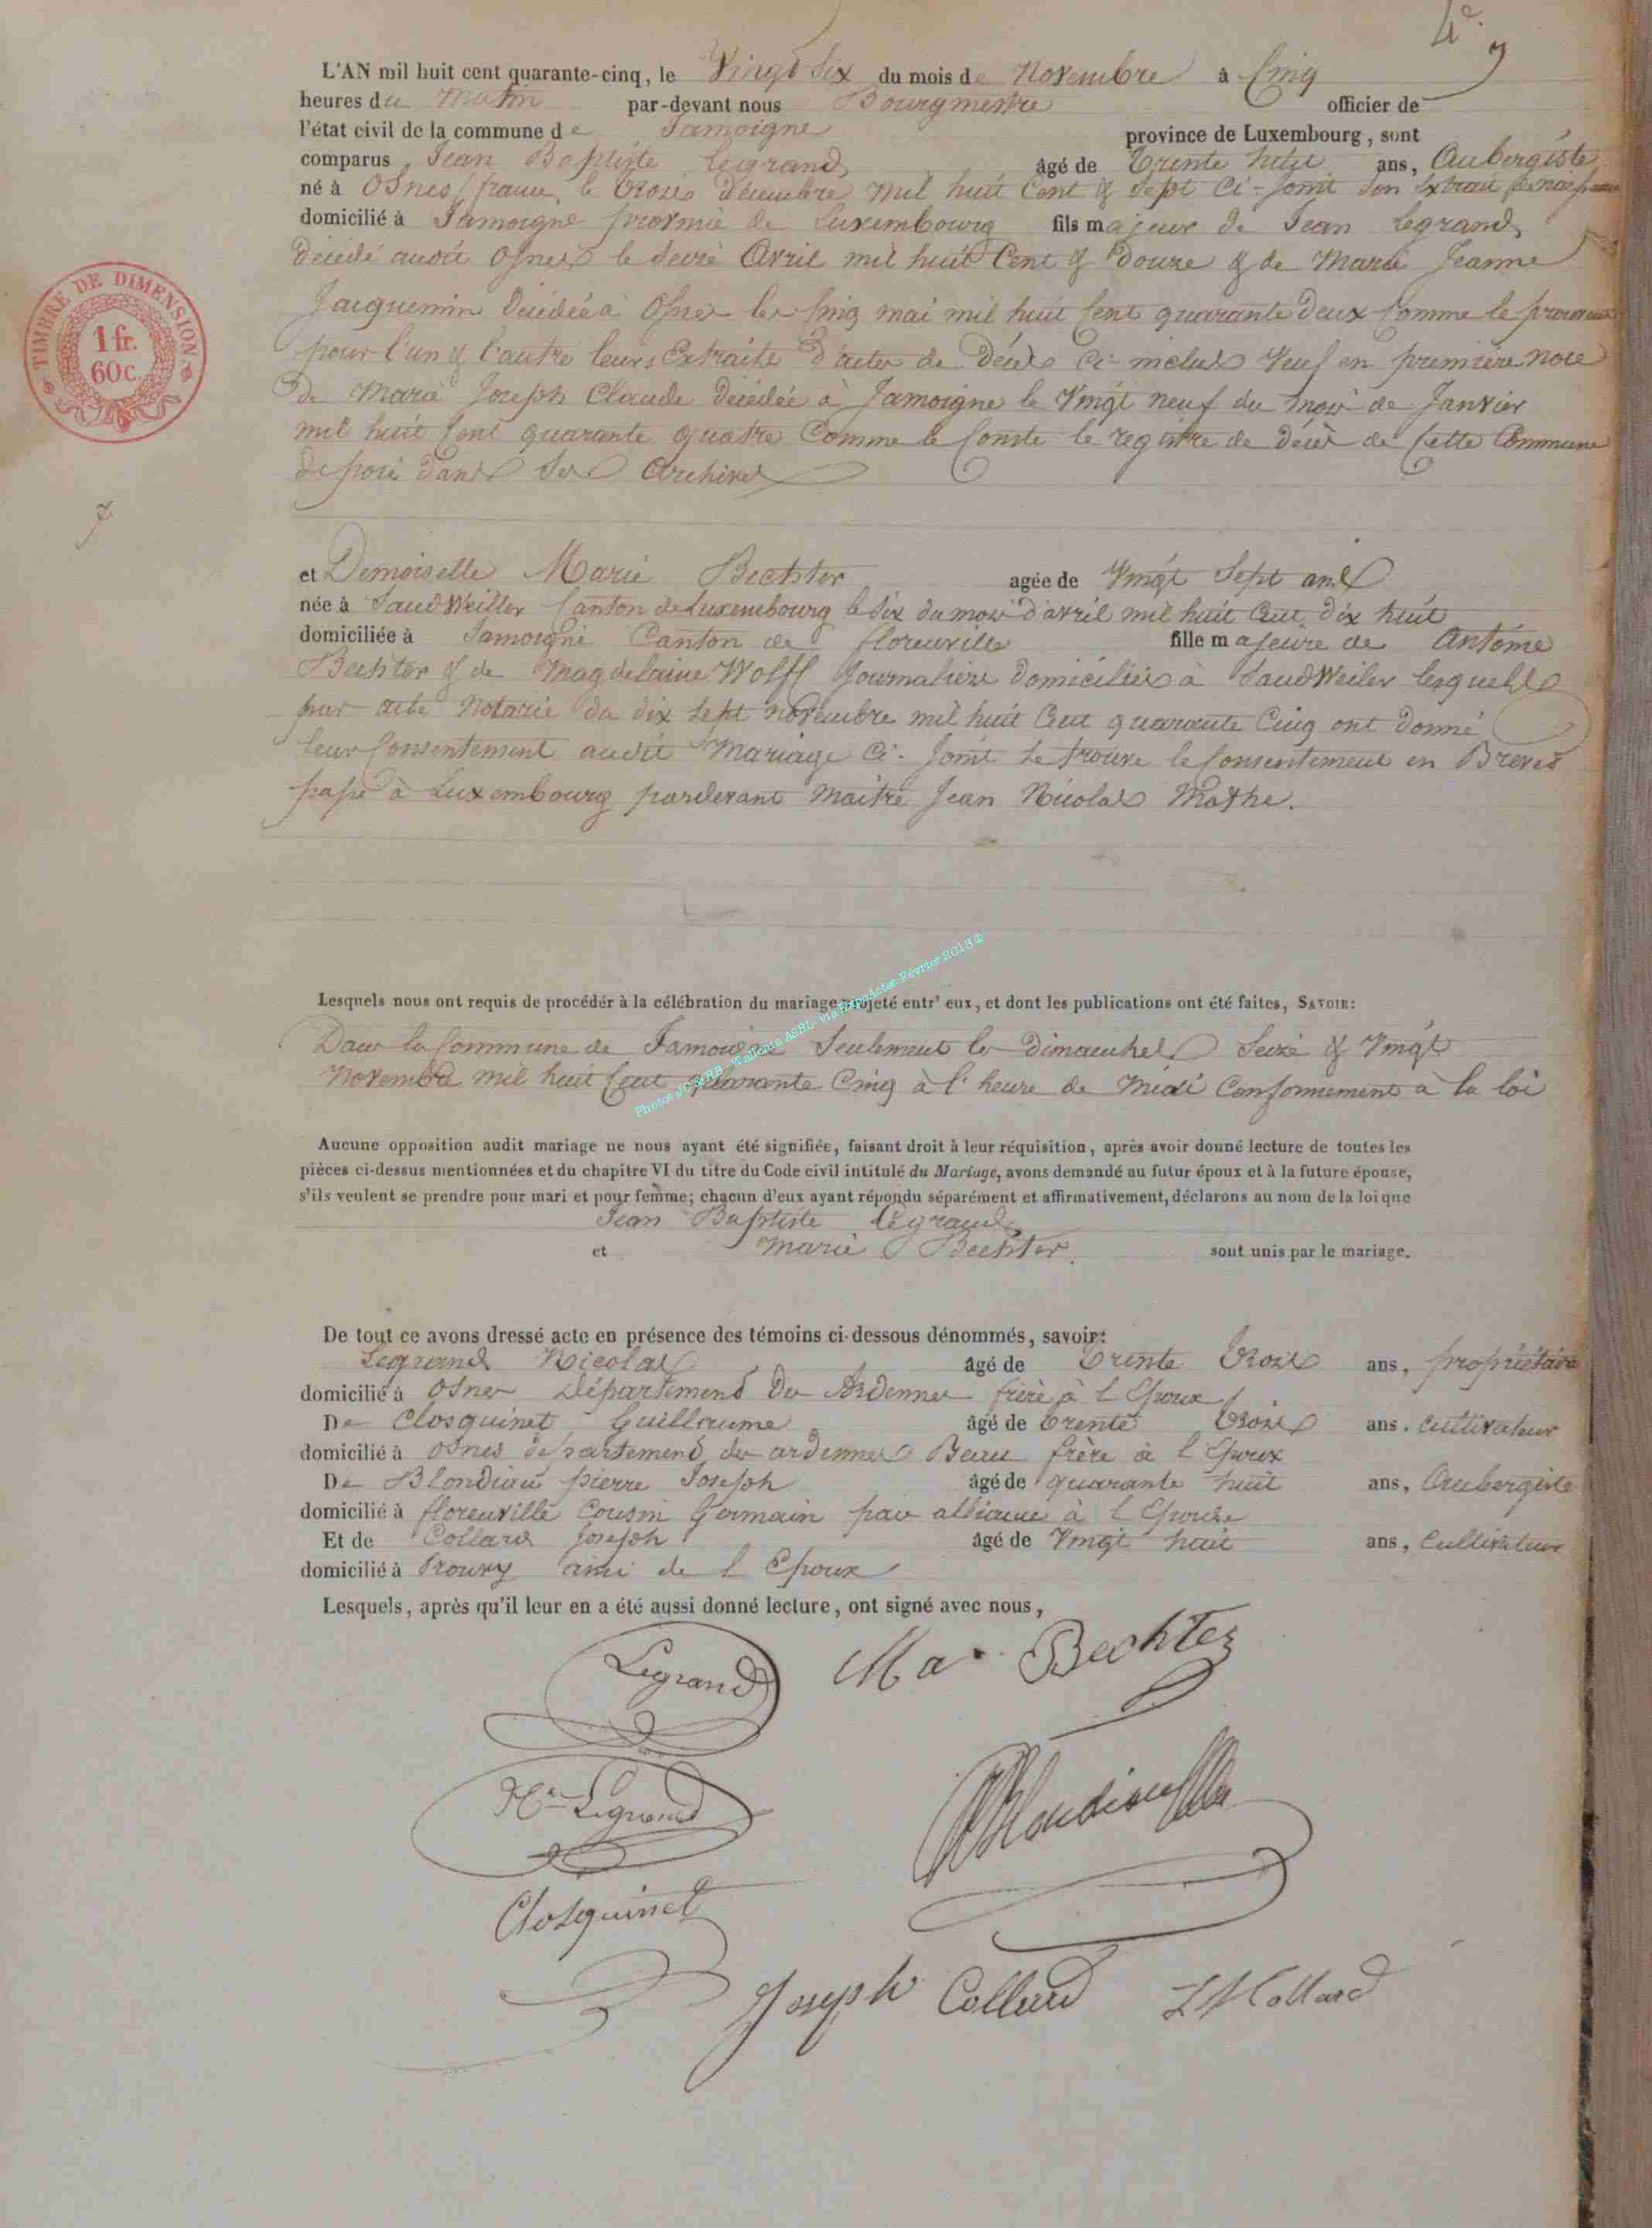 4e.
L'AN mil huit cent quarante-cinq, le Vingt Six du mois de Novembre à Cinq
heures du matin par-devant nous Bourgmestre officier de
l'état civil de la commune de Jamoigne province de Luxembourg, sont
comparus Jean Baptiste Legrand âgé de Trente huit ans, Aubergiste
né à Osnes france, le trois décembre mil huit Cent & Sept Ci-Joint Son Extrait de
domicilié à Jamoigne province de Luxembourg fils majeur de Jean Legrand
décédé audit Osnes le Seize Avril mil huit Cent & Douze & de Marie Jeanne
Jacquemin décédée à Osnes le Cinq mai mil huit Cent quarante Deux Comme le prouvent
pour l'un & l'autre leurs Extraits d'actes de Décès Ci-inclus Veuf en première noce
de Marie Joseph Claude Décédée à Jamoigne le Vingt neuf du mois de Janvier
mil huit Cent quarante quatre Comme le Conste le registre de décès de Cette Commune
déposé dans Ses Archives
et Demoiselle Marie Bechter agée de Vingt Sept ans
née à SandWeiller Canton de Luxembourg le Six du mois d'avril mil huit Cent dix huit
domiciliée à Jamoigne Canton de florenville fille majeure de Antoine
Bechter & de Magdelaine Wolff Journaliers domiciliés à SandWeiler lesquels
par acte Notarié du dix Sept novembre mil huit Cent quarante Cinq ont donné
leur Consentement audit Mariage Ci-Joint Se trouve le Consentement en Brevet
passé à Luxembourg pardevant Maître Jean Nicolas Mothe.
Photos JC & RB - Wallonia ASBL- via ExpoActes-Février 2013 ©
Lesquels nous ont requis de procéder à la célébration du mariage projeté entr' eux, et dont les publications ont été faites, SAVOIR:
Dans la Commune de Jamoigne Seulement les Dimanches Seize & Vingt
Novembre mil huit Cent quarante Cinq à l'heure de Midi Conformement à la loi
Aucune opposition audit mariage ne nous ayant été signifiée, faisant droit à leur réquisition, après avoir donné lecture de toutes les
pièces ci-dessus mentionnées et du chapitre VI du titre du Code civil intitulé du Mariage, avons demandé au futur époux et à la future épouse,
s'ils veulent se prendre pour mari et pour femme; chacun d'eux ayant répondu séparément et affirmativement, déclarons au nom de la loi que
Jean Baptiste Legrand
et Marie Bechter sont unis par le mariage.
De tout ce avons dressé acte en présence des témoins ci-dessous dénommés, savoir:
Legrand Nicolas âgé de Trente Trois ans, propriétaire
domicilié à Osnes Département des Ardennes frère à l'Epoux
De Closquinet Guillaume âgé de Trente Trois ans, Cultivateur
domicilié à Osnes département des ardennes Beau frère à l'Epoux
De Blondiau pierre Joseph âgé de quarante huit ans, Aubergiste
domicilié à florenville Cousin Germain par alliance à l'Epouse
Et de Collard Joseph âgé de Vingt huit ans, Cultivateur
domicilié à Prouvy ami de l'Epoux
Lesquels, après qu'il leur en a été aussi donné lecture, ont signé avec nous,
Legrand Ma. Bechter
Nas Legrand
Blondiau
Closquinet
Joseph Collard Collard
TIMBRE DE DIMENSION
1 fr.
60c.